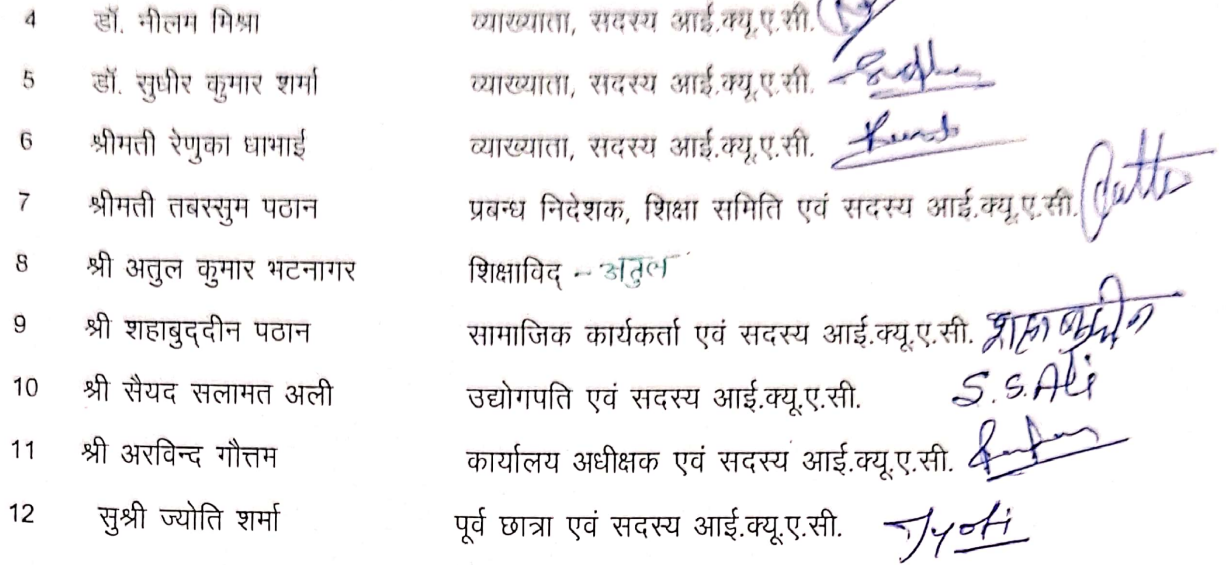 4 डॉ. नीलम मिश्रा व्याख्याता, सदस्य आई.क्यू.ए.सी.
5 डॉ. सुधीर कुमार शर्मा व्याख्याता, सदस्य आई.क्यू.ए.सी.
6 श्रीमती रेणुका धाभाई व्याख्याता, सदस्य आई.क्यू.ए.सी.
7 श्रीमती तबस्सुम पठान प्रबन्ध निदेशक, शिक्षा समिति एवं सदस्य आई.क्यू.ए.सी.
8 श्री अतुल कुमार भटनागर शिक्षाविद् - अतुल
9 श्री शहाबुद्दीन पठान सामाजिक कार्यकर्ता एवं सदस्य आई.क्यू.ए.सी.
10 श्री सैयद सलामत अली उद्योगपति एवं सदस्य आई.क्यू.ए.सी. S.S.Ali
11 श्री अरविन्द गौत्तम कार्यालय अधीक्षक एवं सदस्य आई.क्यू.ए.सी.
12 सुश्री ज्योति शर्मा पूर्व छात्रा एवं सदस्य आई.क्यू.ए.सी. Jyoti